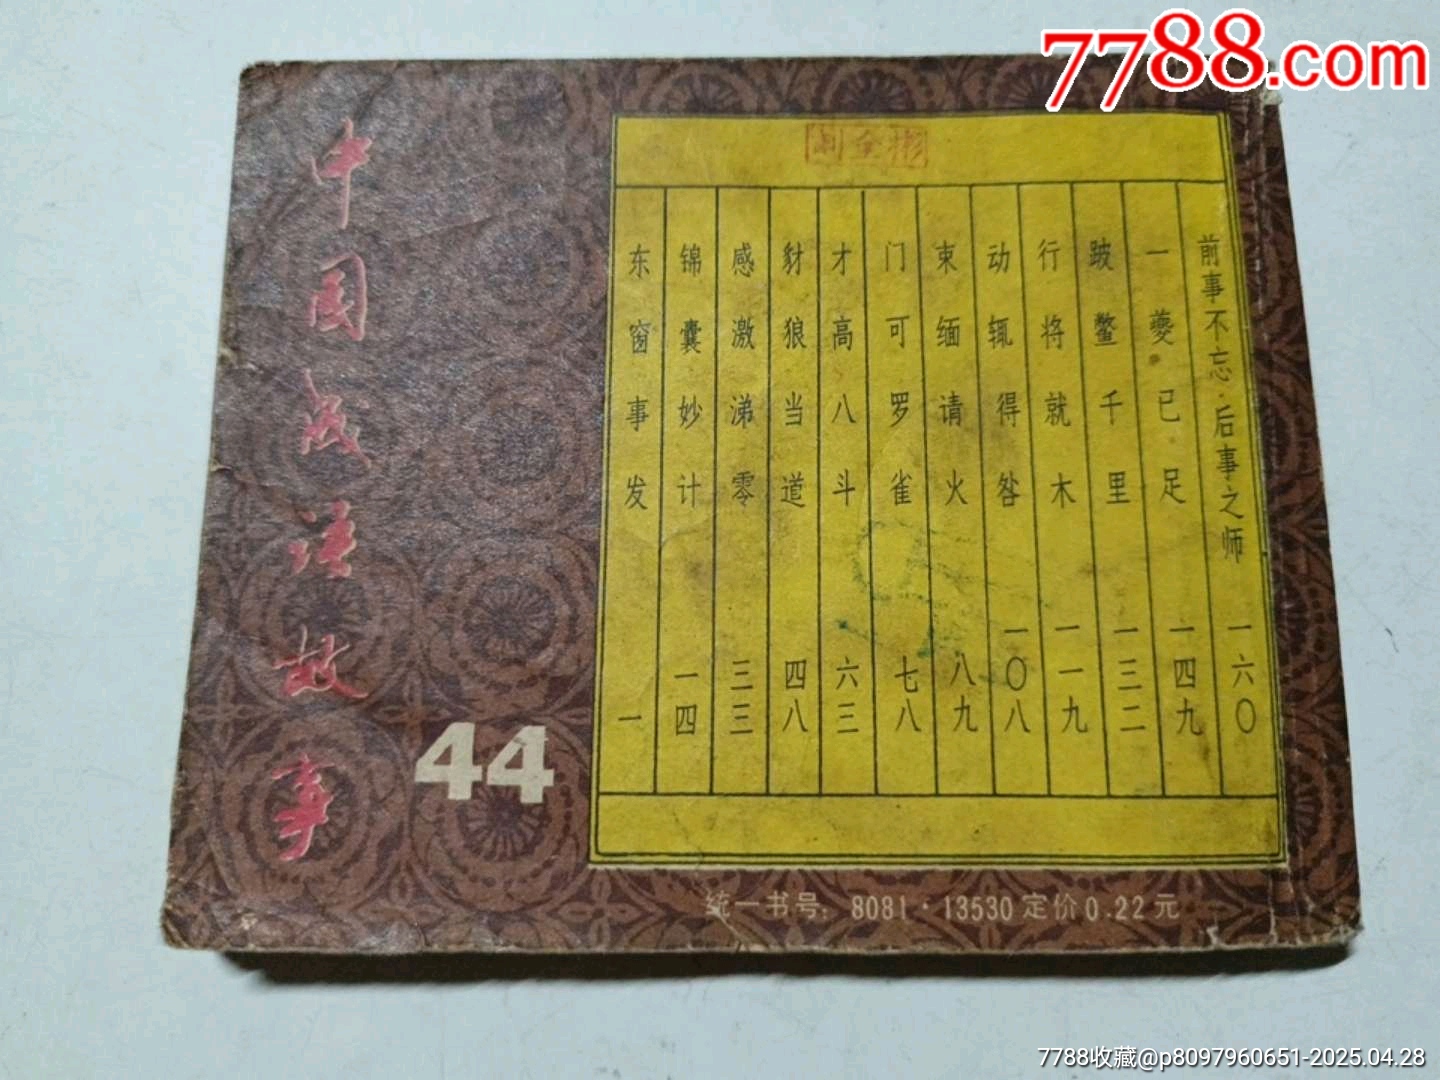 7788.com
中国成语故事
44
东窗事发 一
锦囊妙计 一四
感激涕零 三三
豺狼当道 四八
才高八斗 六三
门可罗雀 七八
束缊请火 八九
动辄得咎 一〇八
行将就木 一一九
跛鳖千里 一三二
一夔已足 一四九
前事不忘·后事之师 一六〇
统一书号：8081·13530 定价0.22元
7788收藏@p8097960651-2025.04.28